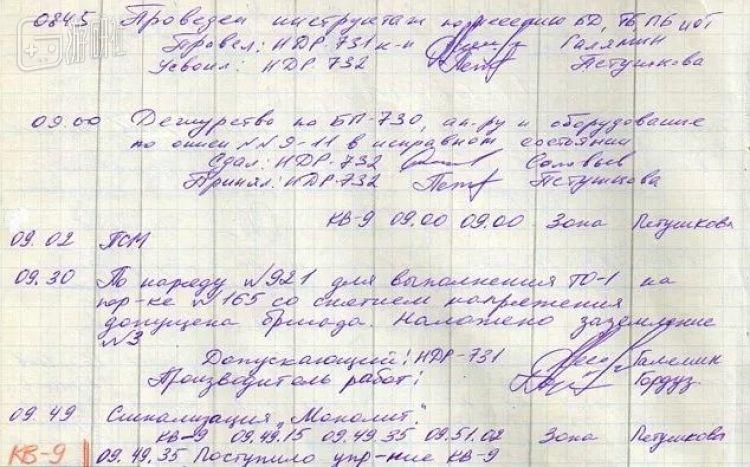 游研社
0845 Проведен инструктаж по несению БД, ТБ, ПБ и ОТ
Провел: НДР 731 к-н Галямин
Усвоил: НДР 732 Петушкова
09.00 Дежурство по БП-730, ап-ру и оборудование
по описи №№ 9-11 в исправном состоянии
Сдал: НДР-732 Соловьев
Принял: НДР-732 Петушкова
КВ-9 09.00 09.00 Зона Петушкова
09.02 ПСМ
09.30 По наряду №921 для выполнения ТО-1 на
№165 со снятием напряжения
допущена бригада. Наложено заземление
№3
Допускающий: НДР-731
Производитель работ: Гордуз.
09.49 Сигнализация „Монолит."
КВ-9 09.49.15 09.49.35 09.51.02 Зона Петушкова
КВ-9 09.49.35 Поступило упр-ние КВ-9